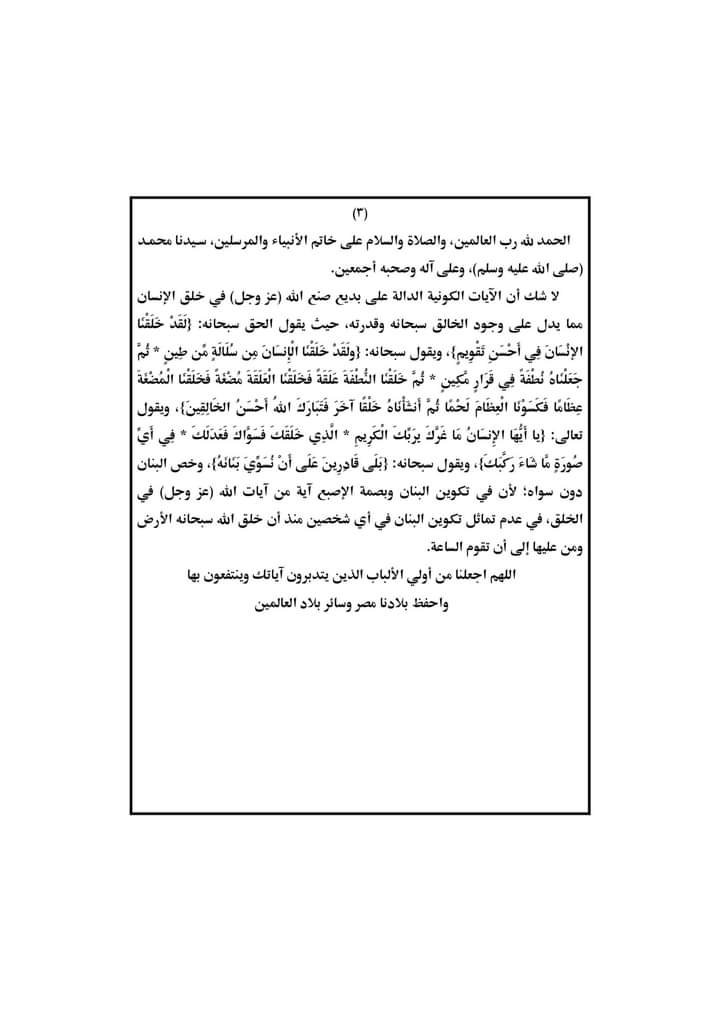 (٣)
الحمد لله رب العالمين، والصلاة والسلام على خاتم الأنبياء والمرسلين، سيدنا محمد
(صلى الله عليه وسلم)، وعلى آله وصحبه أجمعين.
لا شك أن الآيات الكونية الدالة على بديع صنع الله (عز وجل) في خلق الإنسان
مما يدل على وجود الخالق سبحانه وقدرته، حيث يقول الحق سبحانه: {لَقَدْ خَلَقْنَا
الإنْسَانَ فِي أَحْسَنِ تَقْوِيمٍ}، ويقول سبحانه: {ولَقَدْ خَلَقْنَا الْإِنسَانَ مِن سُلَالَةٍ مِّن طِينٍ * ثُمَّ
جَعَلْنَاهُ نُطْفَةً فِي قَرَارٍ مَّكِينٍ * ثُمَّ خَلَقْنَا النُّطْفَةَ عَلَقَةً فَخَلَقْنَا الْعَلَقَةَ مُضْغَةً فَخَلَقْنَا الْمُضْغَةَ
عِظَامًا فَكَسَوْنَا الْعِظَامَ لَحْمًا ثُمَّ أَنشَأْنَاهُ خَلْقًا آخَرَ فَتَبَارَكَ اللهُ أَحْسَنُ الخَالِقِينَ}، ويقول
تعالى: {يا أَيُّهَا الإِنسَانُ مَا غَرَّكَ بِرَبِّكَ الْكَرِيمِ * الَّذِي خَلَقَكَ فَسَوَّاكَ فَعَدَلَكَ * فِي أَيِّ
صُورَةٍ مَّا شَاءَ رَكَّبَكَ}، ويقول سبحانه: {بَلَى قَادِرِينَ عَلَى أَنْ نُسَوِّيَ بَنَانَهُ}، وخص البنان
دون سواه؛ لأن في تكوين البنان وبصمة الإصبع آية من آيات الله (عز وجل) في
الخلق، في عدم تماثل تكوين البنان في أي شخصين منذ أن خلق الله سبحانه الأرض
ومن عليها إلى أن تقوم الساعة.
اللهم اجعلنا من أولي الألباب الذين يتدبرون آياتك وينتفعون بها
واحفظ بلادنا مصر وسائر بلاد العالمين